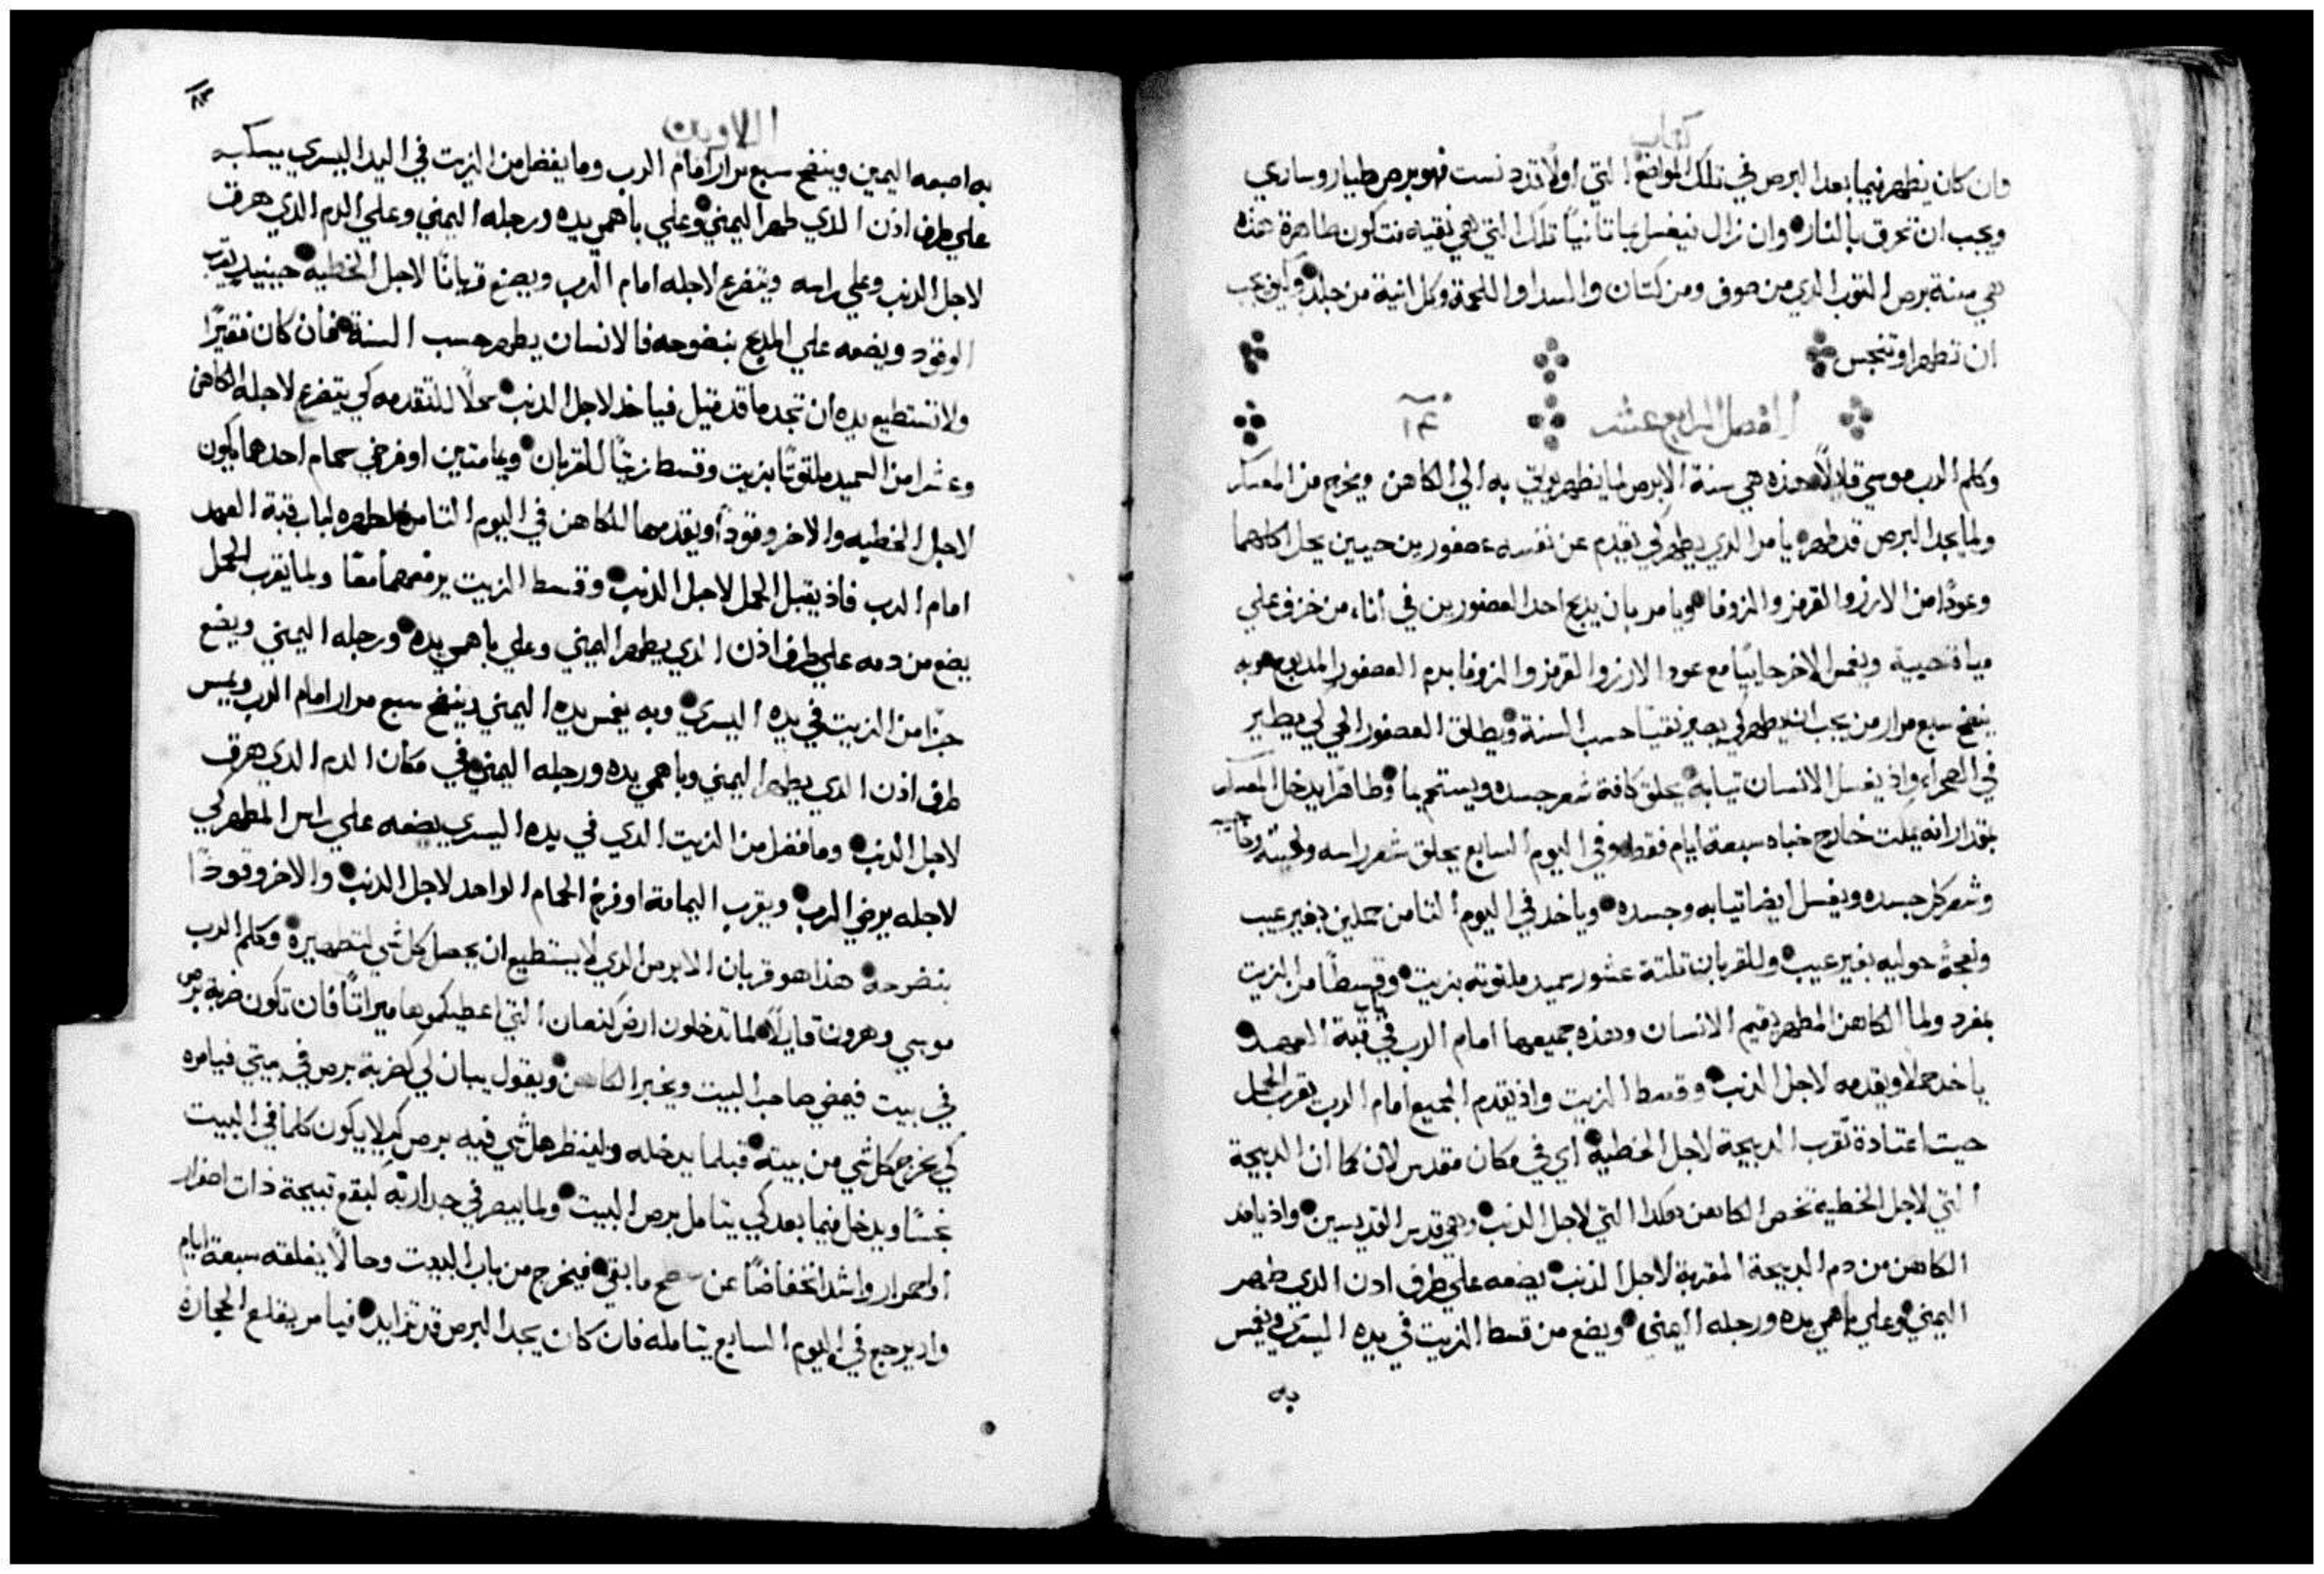 كتاب
وان كان يظهر فيما بعد البرص في تلك المواضع التي اولًا تدنست فهو برص طيار وساري
ويجب ان تحرق بالنار وان زال فيغسل بماء ثانيًا تلك التي هي نقيه فتكون طاهرة هذه
هي سنة برص التوب الدي من صوف ومن كتان والسدا واللحمة وكل انية من جلد وكيف يجب
ان تطهر او تنجس
الفصل الرابع عشر ١٤
وكلم الرب موسي قايلًا هذه هي سنة الابرص لما يظهر يوتي به الي الكاهن ويخرج من المعسكر
ولما يجد البرص قد طهر يامر الدي يطهر لكي يقدم عن نفسه عصفورين حيين يحل اكلهما
وعودًا من الارز والقرمز والزوفا ويامر بان يدبح احد العصفورين في اناء من خزف علي
مياة حيية ويغمس الاخر حايبًا مع عود الارز والقرمز والزوفا بدم العصفور المدبوح وبه
ينضح سبع مرار من يجب ان يطهر لكي يصير نقيًا حسب السنة ويطلق العصفور الحي لكي يطير
في الصحراء واذ يغسل الانسان تيابه يحلق كافة شعر جسده ويستحم بماء وطاهرًا يدخل المعسكر
بمقدار انه يمكت خارج خباه سبعة ايام فقط وفي اليوم السابع يحلق شعر راسه ولحيته وحاجبيه
وشعر كل جسده ويغسل ايضا تيابه وجسده وياخد في اليوم التامن حملين بغير عيب
ونعجة حوليه بغير عيب وللقربان تلتة عشور سميد ملتوته بزيت وقسطًا من الزيت
بمفرد ولما الكاهن المطهر يقيم الانسان وهذه جميعها امام الرب في باب قبة العهد
ياخد حملًا ويقدمه لاجل الدنب وقسط الزيت واذ يقدم الجميع امام الرب يقرب الحمل
حيت اعتادة تقرب الدبيحة لاجل الخطيه اي في مكان مقدس لان كما ان الدبيحة
التي لاجل الخطيه تخص الكاهن هكدا التي لاجل الدنب وهي قدس القديسين واذ ياخد
الكاهن من دم الدبيحة المقربة لاجل الدنب يضعه علي طرف ادن الدي طهر
اليمني وعلي باهمي يده ورجله اليمني ويضع من قسط الزيت في يده اليسري ويغمس
به
اللاويين
به اصبعه اليمين وينضح سبع مرار امام الرب وما يفضل من الزيت في اليد اليسري يسكبه
علي طرف ادن الدي طهر اليمني وعلي باهمي يده ورجله اليمني وعلي الدم الدي هرق
لاجل الدنب وعلي راسه ويتضرع لاجله امام الرب ويصنع قربانًا لاجل الخطيه حينيد يقرب
الوقود ويضعه علي المدبح بنضوحه فالانسان يطهر حسب السنة فان كان فقيرًا
ولا تستطيع يده ان تجد ما قد قيل فياخد لاجل الدنب حملًا للتقدمه كي يتضرع لاجله الكاهن
وعشرا من السميد ملتوتًا بزيت وقسط زيتًا للقربان ويمامتين او فرخي حمام احدهما يكون
لاجل الخطيه والاخر وقودًا ويقدمها للكاهن في اليوم التامن لطهره لباب قبة العهد
امام الرب فاذ يقبل الحمل لاجل الدنب وقسط الزيت يرفعهما معًا ولما يقرب الحمل
يضع من دمه علي طرف ادن الدي يطهر اليمني وعلي باهمي يده ورجله اليمني ويضع
جزًا من الزيت في يده اليسري وبه يغمس يده اليمني وينضح سبع مرار امام الرب ويمس
طرف ادن الدي يطهر اليمني وباهمي يده ورجله اليمني في مكان الدم الدي هرق
لاجل الدنب وما فضل من الزيت الدي في يده اليسري يضعه علي راس المطهر لكي
لاجله يرضي الرب ويقرب اليمامة او فرخ الحمام الواحد لاجل الدنب والاخر وقودًا
بنضوحه هذا هو قربان الابرص الدي لا يستطيع ان يحصل كل شي لتطهيره وكلم الرب
موسي وهرون قايلًا لما تدخلون ارض كنعان التي اعطيكموها ميراتًا فان تكون ضربة برص
في بيت فيمضي صاحب البيت ويخبر الكاهن ويقول يبان لي كضربة برص في بيتي فيامره
كي يخرج كل شي من بيته قبلما يدخله ولينظر هل شي فيه برص كيلا يكون كلما في البيت
نجسًا ويدخل فيما بعد كي يتامل برص البيت ولما يبصر في جدارته كبقع قبيحة ذات اصفرار
او احمرار واشد انخفاضًا عن سطح ما بقي فيخرج من باب البيت وحالًا يغلقه سبعة ايام
واد يرجع في اليوم السابع يتامله فان كان يجد البرص قد تزايد فيامر بقلع الحجارة